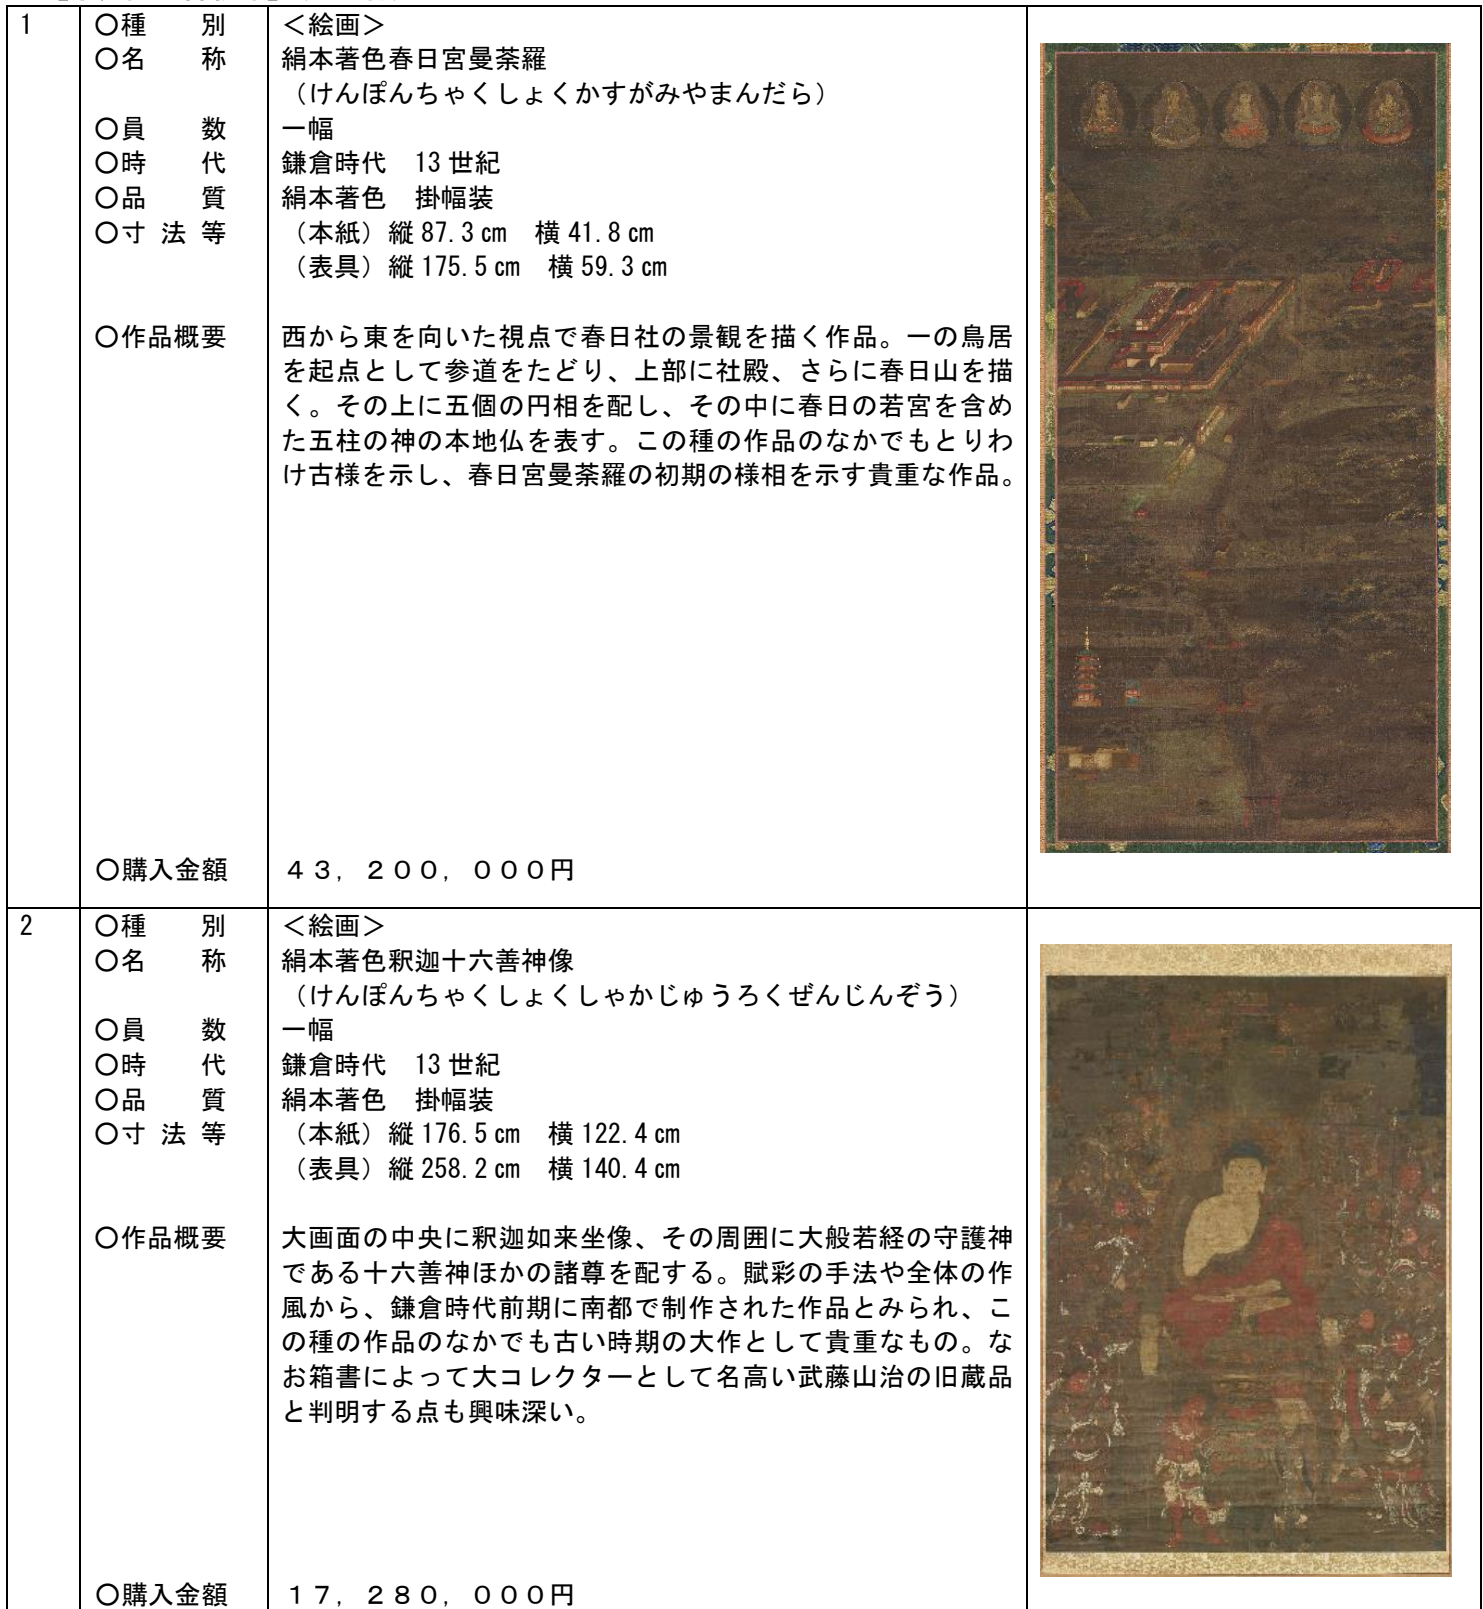 1 〇種　別 ＜絵画＞
〇名　称 絹本著色春日宮曼荼羅
（けんぽんちゃくしょくかすがみやまんだら）
〇員　数 一幅
〇時　代 鎌倉時代　13世紀
〇品　質 絹本著色　掛幅装
〇寸法等 （本紙）縦87.3㎝　横41.8㎝
（表具）縦175.5㎝　横59.3㎝
〇作品概要 西から東を向いた視点で春日社の景観を描く作品。一の鳥居
を起点として参道をたどり、上部に社殿、さらに春日山を描
く。その上に五個の円相を配し、その中に春日の若宮を含め
た五柱の神の本地仏を表す。この種の作品のなかでもとりわ
け古様を示し、春日宮曼荼羅の初期の様相を示す貴重な作品。
〇購入金額 ４３，２００，０００円
2 〇種　別 ＜絵画＞
〇名　称 絹本著色釈迦十六善神像
（けんぽんちゃくしょくしゃかじゅうろくぜんじんぞう）
〇員　数 一幅
〇時　代 鎌倉時代　13世紀
〇品　質 絹本著色　掛幅装
〇寸法等 （本紙）縦176.5㎝　横122.4㎝
（表具）縦258.2㎝　横140.4㎝
〇作品概要 大画面の中央に釈迦如来坐像、その周囲に大般若経の守護神
である十六善神ほかの諸尊を配する。賦彩の手法や全体の作
風から、鎌倉時代前期に南都で制作された作品とみられ、こ
の種の作品のなかでも古い時期の大作として貴重なもの。な
お箱書によって大コレクターとして名高い武藤山治の旧蔵品
と判明する点も興味深い。
〇購入金額 １７，２８０，０００円